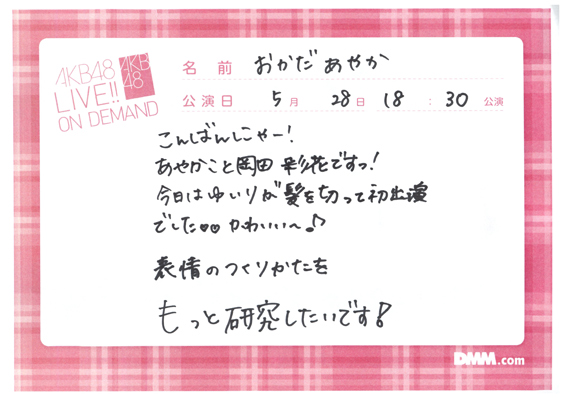 AKB48
LIVE!!
ON DEMAND
AKB
48
名 前 おかだあやか
公演日 5月 28日 18 : 30 公演
こんばんにゃー!
あやかこと岡田彩花ですっ!
今日はゆいりが髪を切って初出演
でした♥♥かわいい〜♪
表情のつくりかたを
もっと研究したいです!
DMM.com